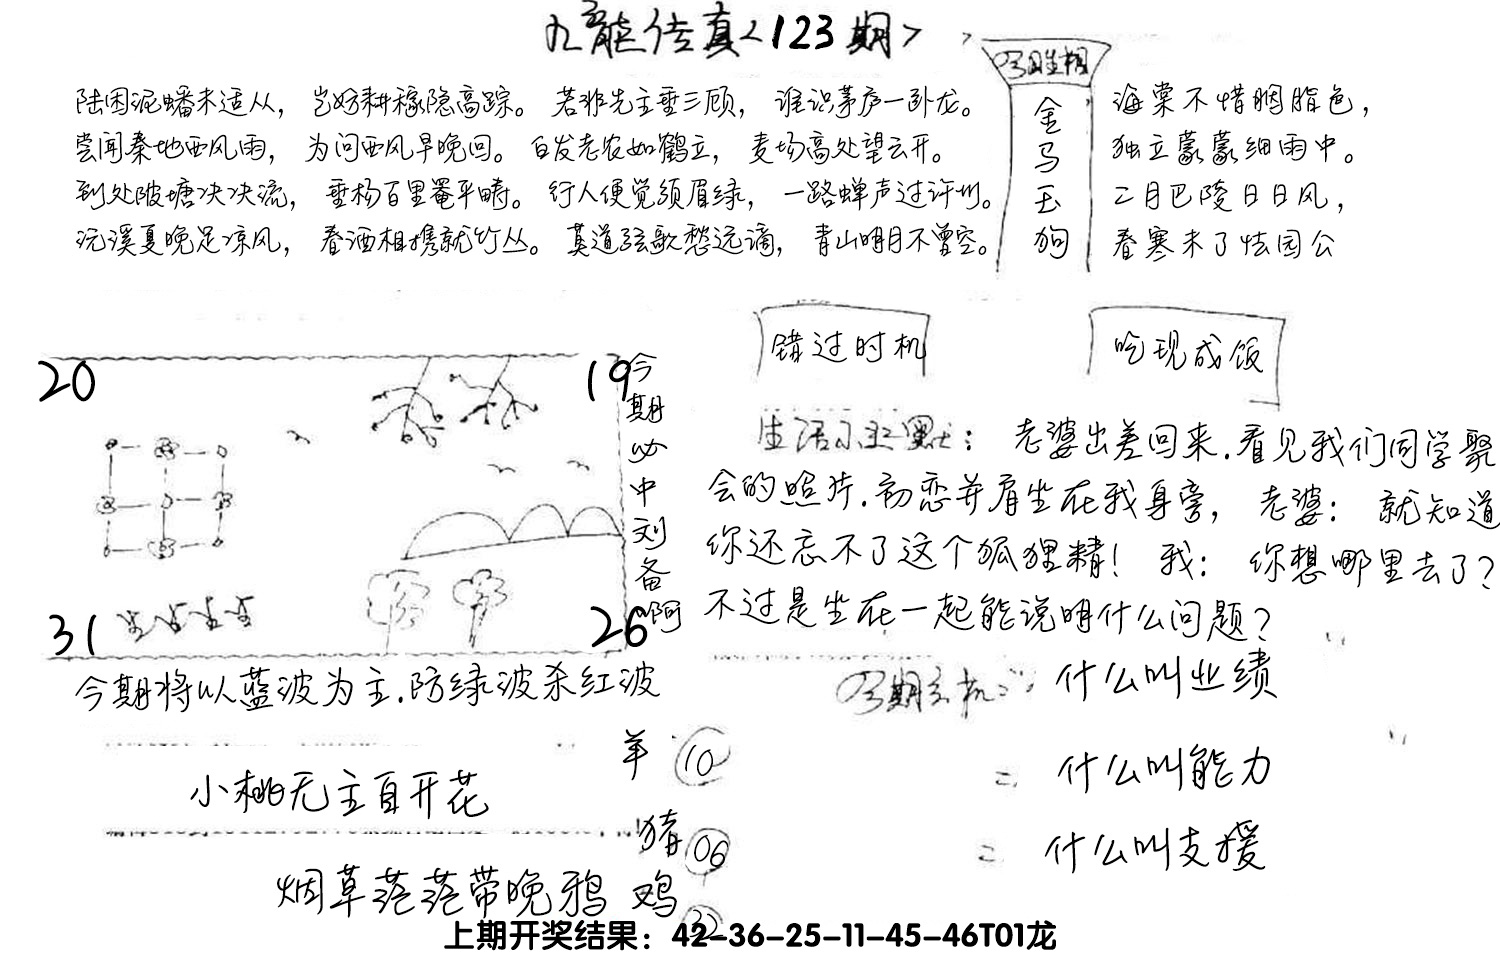 九龍传真<123期>
今期生相
金马玉狗
陆困泥蟠未适从，岂妨耕稼隐高踪。若非先主垂三顾，谁识茅庐一卧龙。
尝闻秦地西风雨，为问西风早晚回。白发老农如鹤立，麦场高处望云开。
到处陂塘决决流，垂杨百里罨平畴。行人便觉须眉绿，一路蝉声过许州。
沅溪夏晚足凉风，春酒相携就竹丛。莫道弦歌愁远谪，青山明月不曾空。
海棠不惜胭脂色，
独立蒙蒙细雨中。
二月巴陵日日风，
春寒未了怯园公
错过时机
吃现成饭
20
19
31
26
今期必中刘备啊
生活小幽默：老婆出差回来.看见我们同学聚
会的照片.初恋并肩坐在我身旁，老婆：就知道
你还忘不了这个狐狸精！我：你想哪里去了？
不过是坐在一起能说明什么问题？
今期将以蓝波为主.防绿波杀红波
今期玄机：什么叫业绩
什么叫能力
什么叫支援
小桃无主自开花
烟草茫茫带晚鸦
羊 10
猪 06
鸡 32
上期开奖结果：42-36-25-11-45-46T01龙